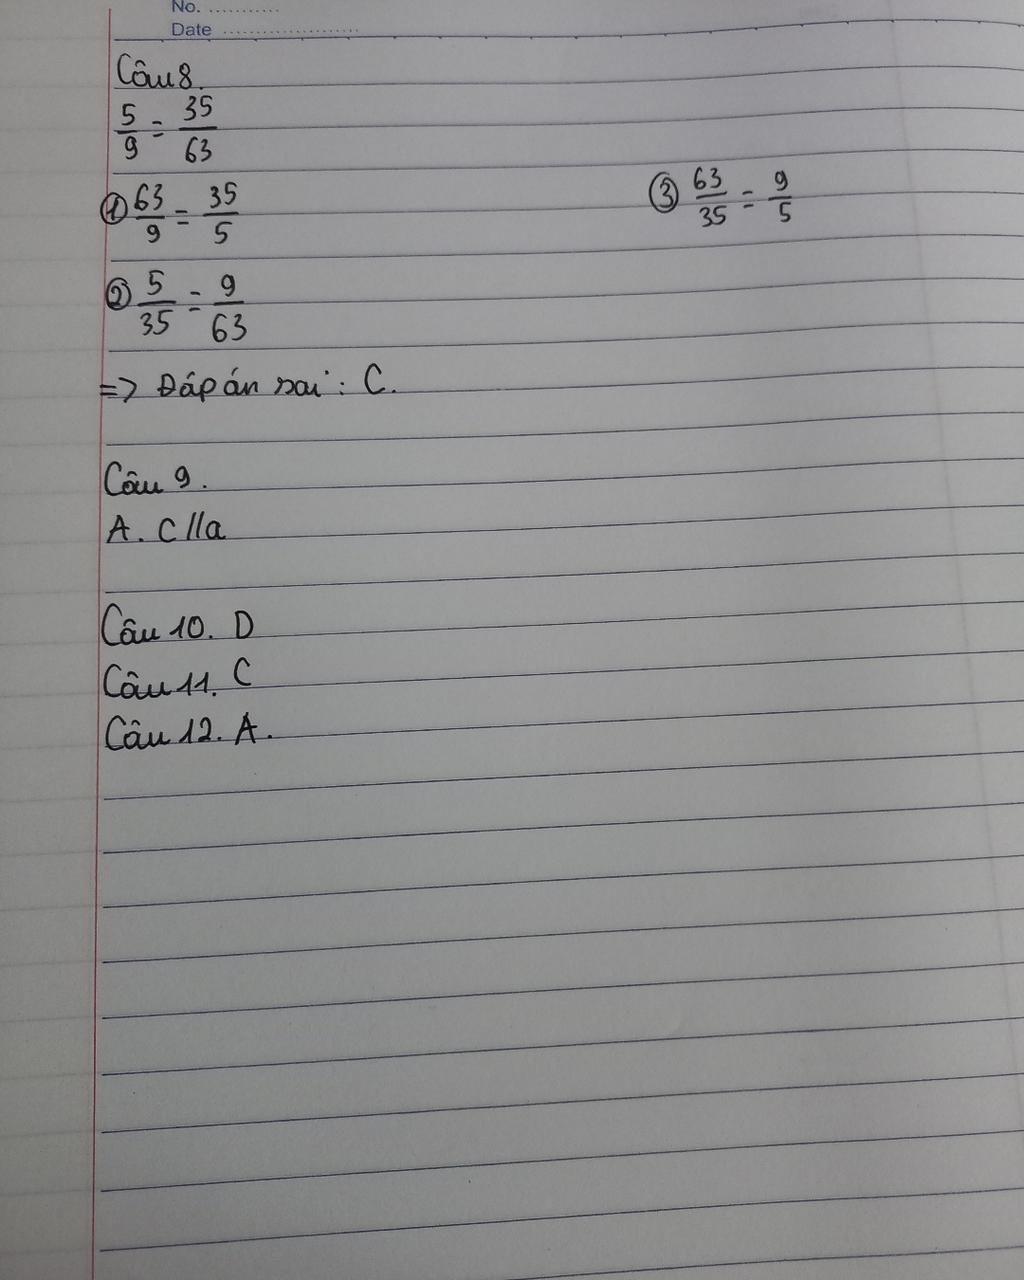 No. ............
Date ........................
Câu 8.
5/9 = 35/63
① 63/9 = 35/5
③ 63/35 = 9/5
② 5/35 = 9/63
=> Đáp án sai : C.
Câu 9.
A. c // a
Câu 10. D
Câu 11. C
Câu 12. A.